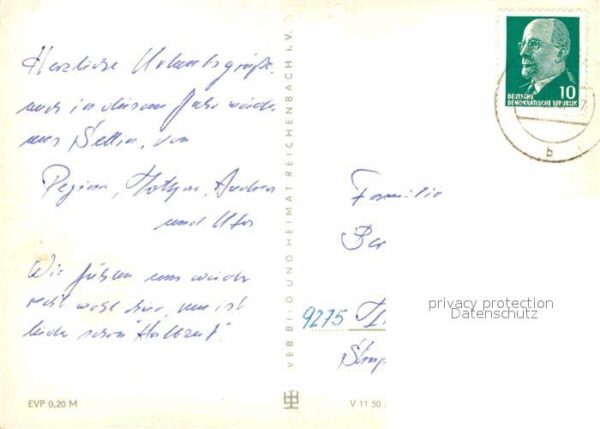 Herzliche Urlaubsgrüße
auch in diesem Jahr wieder
aus Sellin, von
Regina, Lothar, Andrea
und Uta
Wir fühlen uns wieder
recht wohl hier, nur ist
leider schon "Halbzeit".
EVP 0,20 M
VEB BILD UND HEIMAT REICHENBACH I. V.
10
DEUTSCHE
DEMOKRATISCHE REPUBLIK
b
Familie
Ber
9275
V 11 50
privacy protection
Datenschutz